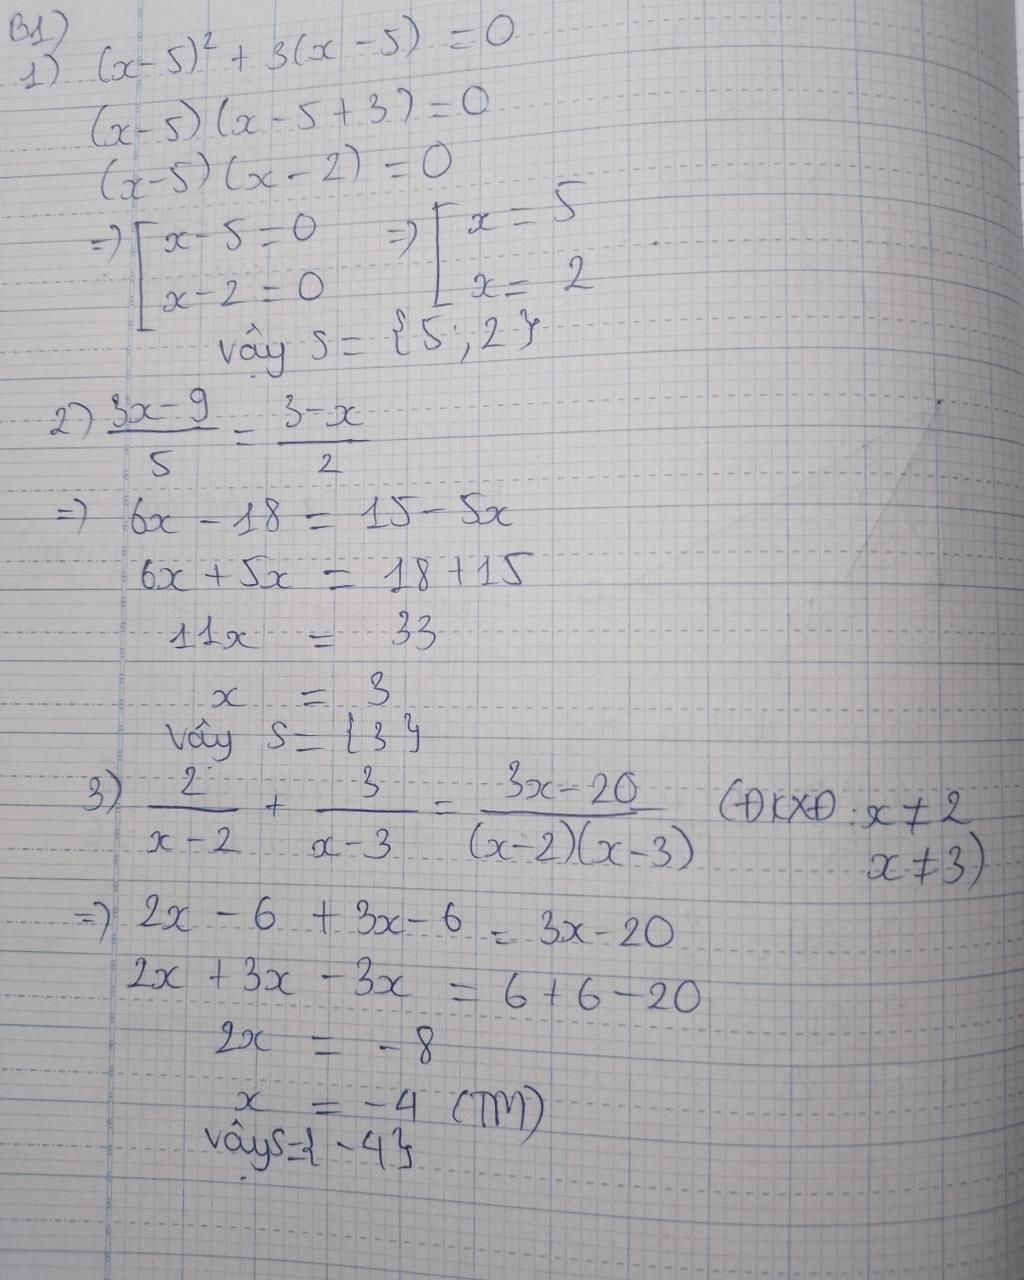 B1)
1) (x-5)² + 3(x-5) = 0
(x-5)(x-5+3) = 0
(x-5)(x-2) = 0
=> [ x-5 = 0 => [ x = 5
x-2 = 0 x = 2
vậy S = {5;2}
2) (3x-9)/5 = (3-x)/2
=> 6x - 18 = 15 - 5x
6x + 5x = 18 + 15
11x = 33
x = 3
Vậy S = {3}
3) 2/(x-2) + 3/(x-3) = (3x-20)/((x-2)(x-3)) (ĐKXĐ: x ≠ 2
x ≠ 3)
=> 2x - 6 + 3x - 6 = 3x - 20
2x + 3x - 3x = 6 + 6 - 20
2x = -8
x = -4 (TM)
Vậy S = {-4}